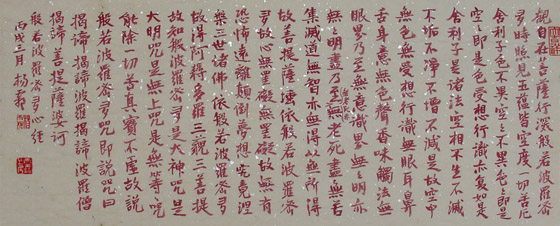 觀自在菩薩行深般若波羅密
多時照見五蘊皆空度一切苦厄
舍利子色不異空空不異色色即是
空空即是色受想行識亦復如是
舍利子是諸法空相不生不滅
不垢不淨不增不減是故空中
無色無受想行識無眼耳鼻
舌身意無色聲香味觸法無
眼界乃至無意識界無無明亦
無無明盡乃至無老死盡無苦
集滅道無智亦無得以無所得
故菩提薩埵依般若波羅密
多故心無罣礙無罣礙故無有
恐怖遠離顛倒夢想究竟涅
槃三世諸佛依般若波羅密多
故得阿耨多羅三藐三菩提
故知般若波羅密多是大神咒是
大明咒是無上咒是無等等咒
能除一切苦真實不虛故說
般若波羅密多咒即說咒曰
揭諦揭諦波羅揭諦波羅僧
揭諦菩提薩婆訶
般若波羅密多心經
丙戌三月楊